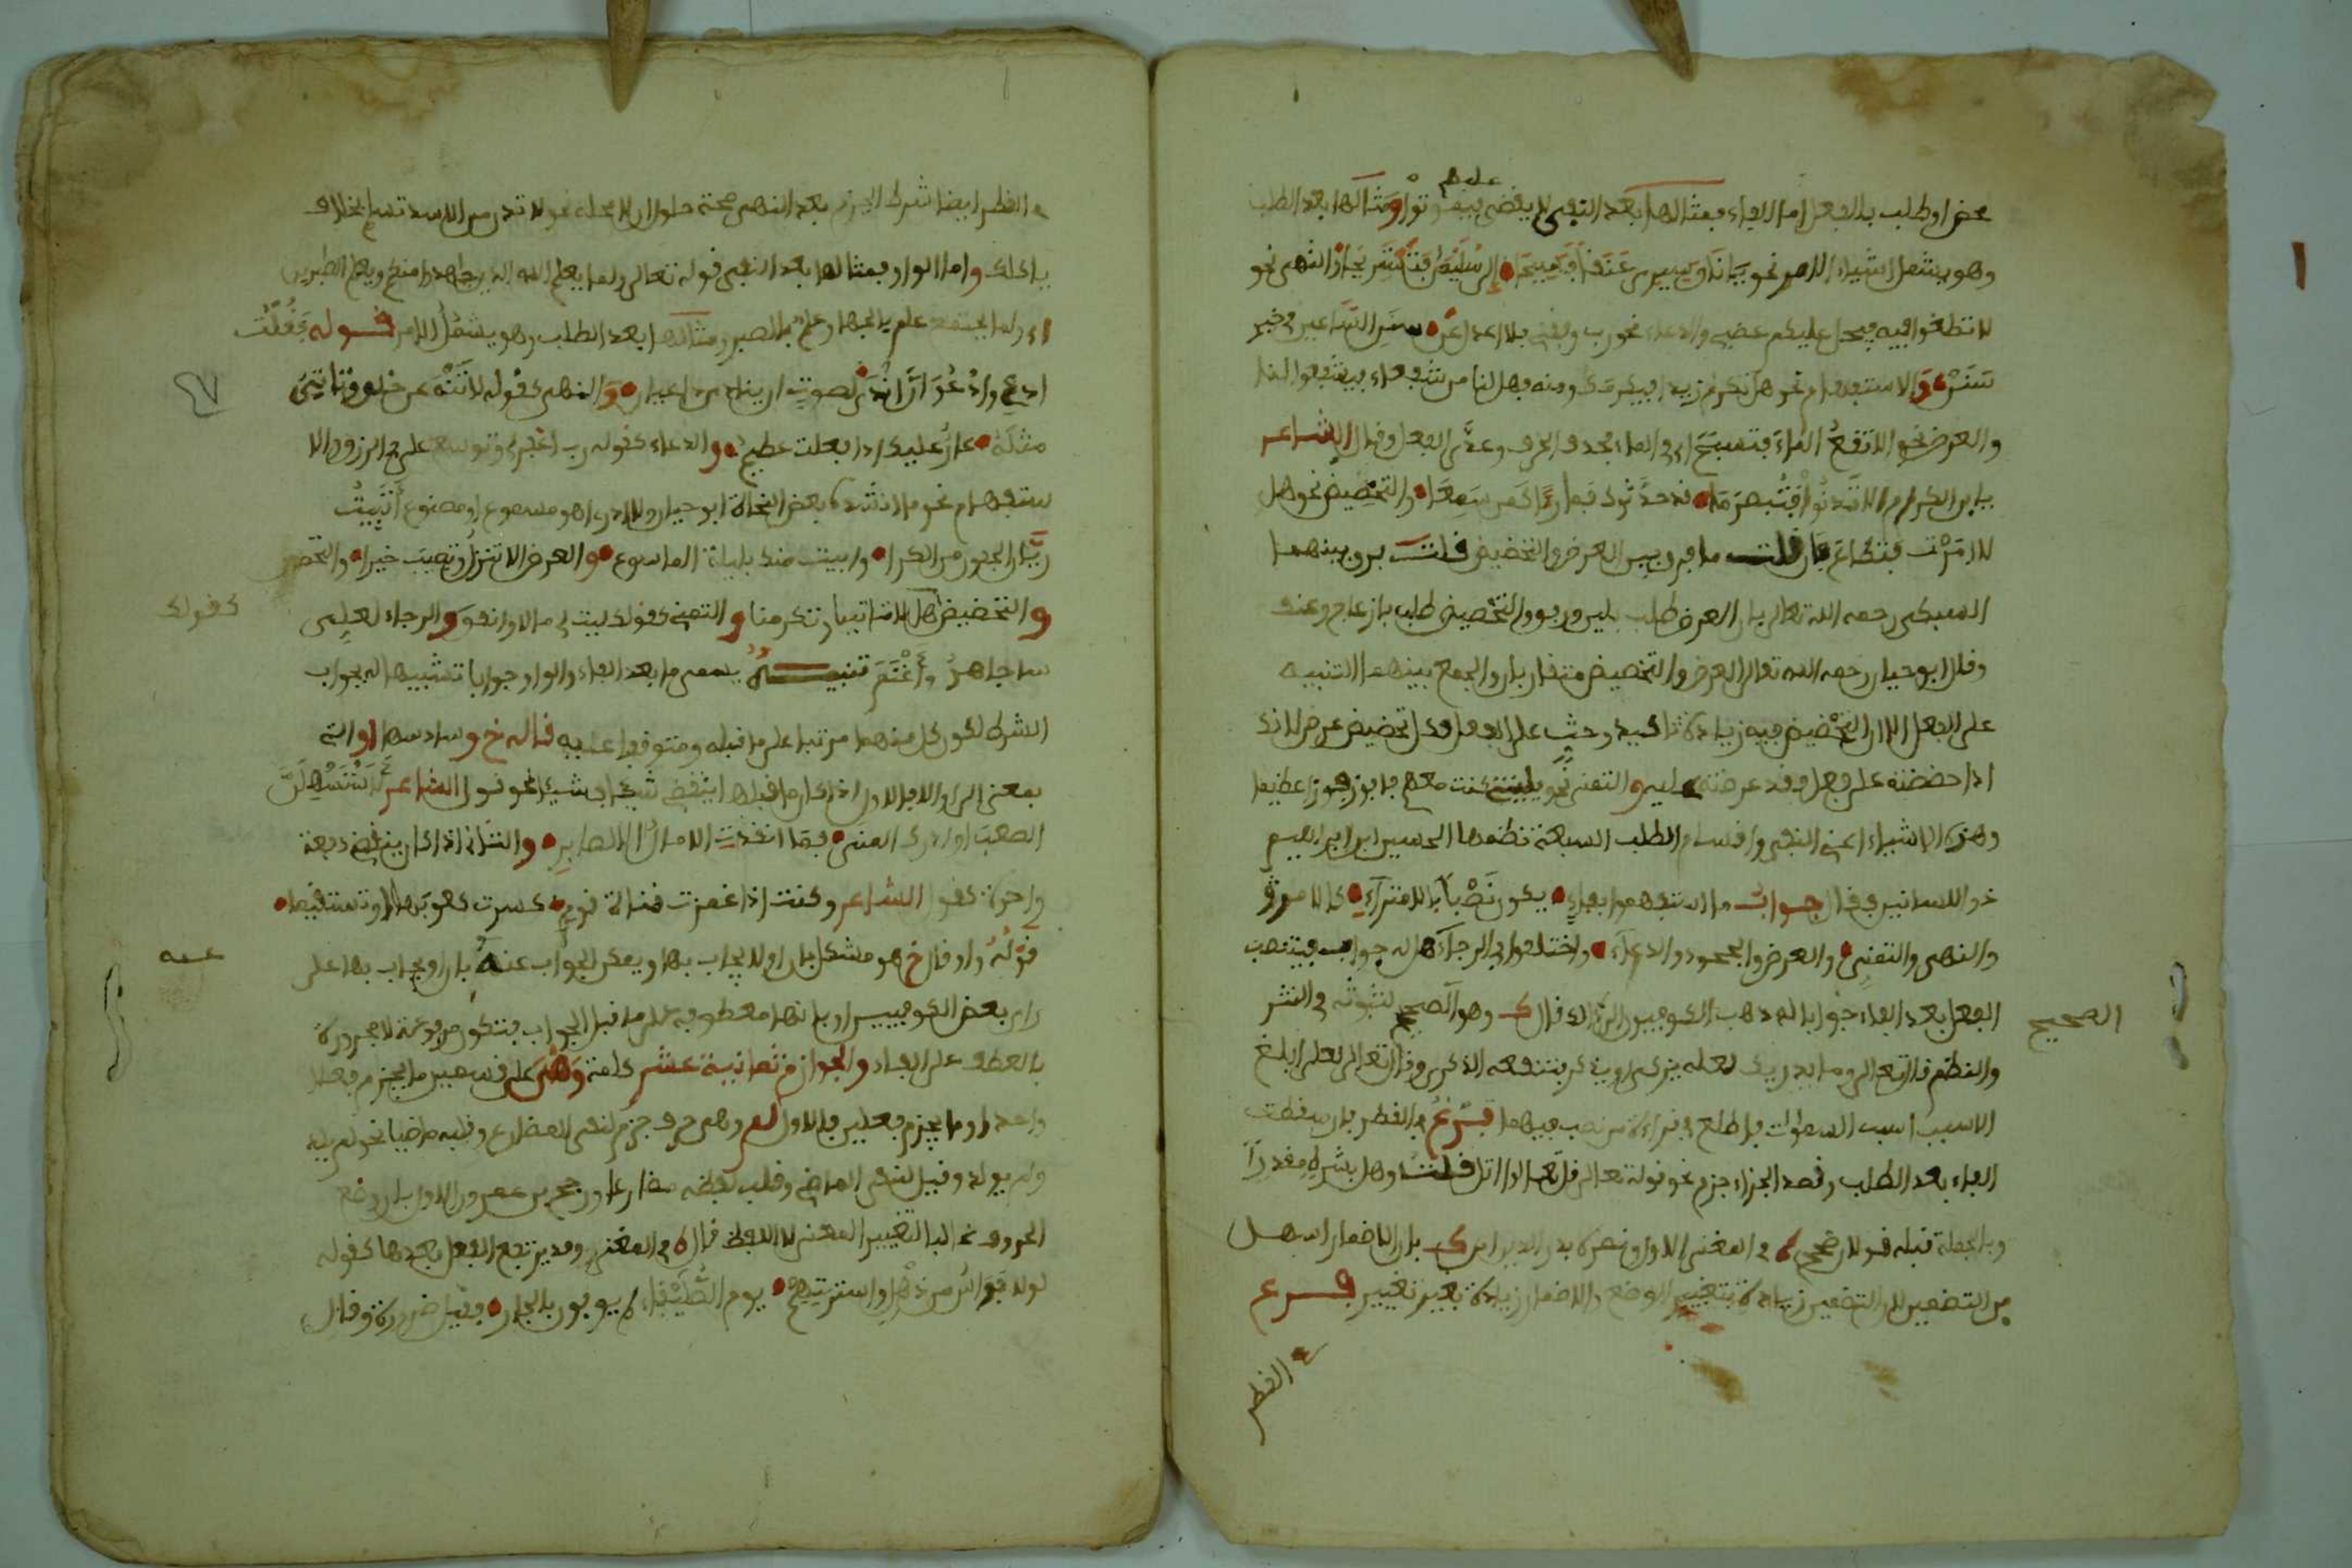 محض او طلب بالفعل اما الفاء فمثالها بعد النفي لا يقضى عليهم فيموتوا ومثالها بعد الطلب
وهو يشمل اشياء الامر نحو يا ناق سيري عنقا فسيحا الى سليمان فنستريحا والنهي نحو
لا تطغوا فيه فيحل عليكم غضبي والدعاء نحو رب وفقني فلا اعدل عن سنن الساعين في خير
سنن والاستفهام نحو هل تكرم زيدا فيكرمك ومنه فهل لنا من شفعاء فيشفعوا لنا
والعرض نحو الا تقع الماء فتسبح اي في الماء فحذف الحرف وعدى الفعل وقال الشاعر
يا ابن الكرام الا تدنوا فتبصر ما قد حدثوك فما راء كمن سمعا والتحضيض نحو هل
لا امرت فتطاع فان قلت ما فرق بين العرض والتحضيض قلت فرق بينهما
السبكي رحمه الله تعالى بان العرض طلب بلين ورفق والتحضيض طلب بازعاج وعنف
وقال ابو حيان رحمه الله تعالى العرض والتحضيض متقاربان والجمع بينهما التنبيه
على الفعل الا ان التحضيض فيه زيادة تاكيد وحث على الفعل فكل تحضيض عرض لانك
اذا حضضته على فعل فقد عرضته عليه والتمني نحو يليتني كنت معهم فافوز فوزا عظيما
وهذه الاشياء اعني النفي واقسام الطلب السبعة نظمها الحسين ابن ابراهيم
ذو اللسانين فقال جواب ما استفهموا بفاء يكون نصبا بلا امتراء كالامر
والنهي والتمني والعرض والجحود والدعاء واختلفوا في الرجاء هل له جواب فينتصب
الفعل بعد الفاء جوابا له ذهب الكوفيون الى ذلك قال ك وهو الصحيح لثبوته في النثر
الصحيح
والنظم قال تعالى وما يدريك لعله يزكى او يذكر فتنفعه الذكرى وقال تعالى لعلي ابلغ
الاسباب اسباب السموات فاطلع في قراءة من نصب فيهما فرع في القطر فان سقطت
الفاء بعد الطلب وقصد الجزاء جزم نحو قوله تعالى قل تعالوا اتل قلت وهل بشرط مقدر
او بالجملة قبله قولان صحح في المغني الاول ونصره بدر الدين ابن ك بان الاضمار اسهل
من التضمين لان التضمين زيادة بتغيير الوضع والاضمار زيادة بغير تغيير فرع
في القطر
في القطر ايضا شرط الجزم بعد النهي صحة حلول ان لا محله نحو لا تدن من الاسد تسلم بخلاف
ياكلك واما الواو فمثالها بعد النفي قوله تعالى ولما يعلم الله الذين جاهدوا منكم ويعلم الصابرين
اي ولما يجتمع علم بالجهاد وعلم بالصبر ومثالها بعد الطلب وهو يشمل الامر قوله فقلت
ادعي وادعو ان اندى لصوت ان ينادي داعيان والنهي كقوله لا تنه عن خلق وتاتي
مثله عار عليك اذا فعلت عظيم والدعاء كقوله رب اغفر لي وتوسع علي في الرزق والا
ستفهام نحو ما انشده بعض النحاة ابو حيان ولا ادري اهو مسموع او مصنوع اتبيت
ريان الجفون من الكرا وابيت منك بليلة الملسوع والعرض الا تنزل وتصيب خيرا والتحض
والتحضيض هل لا تاتينا وتكرمنا والتمني كقولك ليت لي مالا وانفق والرجاء لعلي
كقولك
ساجاهد واغنم تنبيه يسمى ما بعد الفاء والواو جوابا تشبيها له بجواب
الشرط لكون كل منهما مرتبا على ما قبله ومتوقفا عليه قاله خ وسادسها او التي
بمعنى الى او الا فالاول اذا كان ما قبلها ينقضي شيئا فشيئا نحو قول الشاعر لاستسهلن
الصعب او ادرك المنى فما انقادت الامال الا لصابر والثاني اذا كان ينقضي دفعة
واحدة كقول الشاعر وكنت اذا غمزت قناة قوم كسرت كعوبها او تستقيما
قوله واو قال خ هو مشكل بان او لا يجاب بها ويمكن الجواب عنه بان او يجاب بها على
عنه
راي بعض الكوفيين او بانها معطوفة على ما قبل الجواب فتكون مرفوعة لا مجرورة
بالعطف على الفاء والجوازم ثمانية عشر كلمة وهي على قسمين ما يجزم فعلا
واحدا وما يجزم فعلين فالاول لم وهي حرف جزم لنفي المضارع وقلبه ماضيا نحو لم يلد
ولم يولد وقيل لنفي الماضي وقلب لفظه مضارعا ورجح بن عصفور الاول بان وضع
الحروف غالبا لتغيير المعنى لا اللفظ قال في المغني وقد يرتفع الفعل بعدها كقوله
لولا فوارس من ذهل واسرتهم يوم الصليفاء لم يوفون بالجار فقيل ضرورة وقال